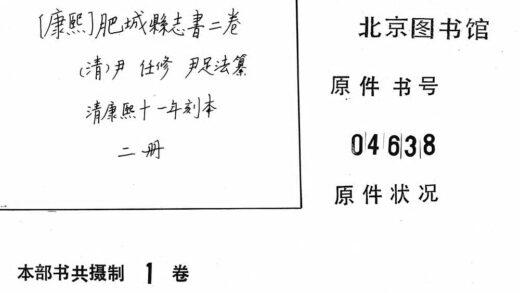 [康熙]肥城縣志書二卷
(清)尹 任修 尹足法纂
清康熙十一年刻本
二册
北京图书馆
原件书号
04638
原件状况
本部书共摄制 1 卷